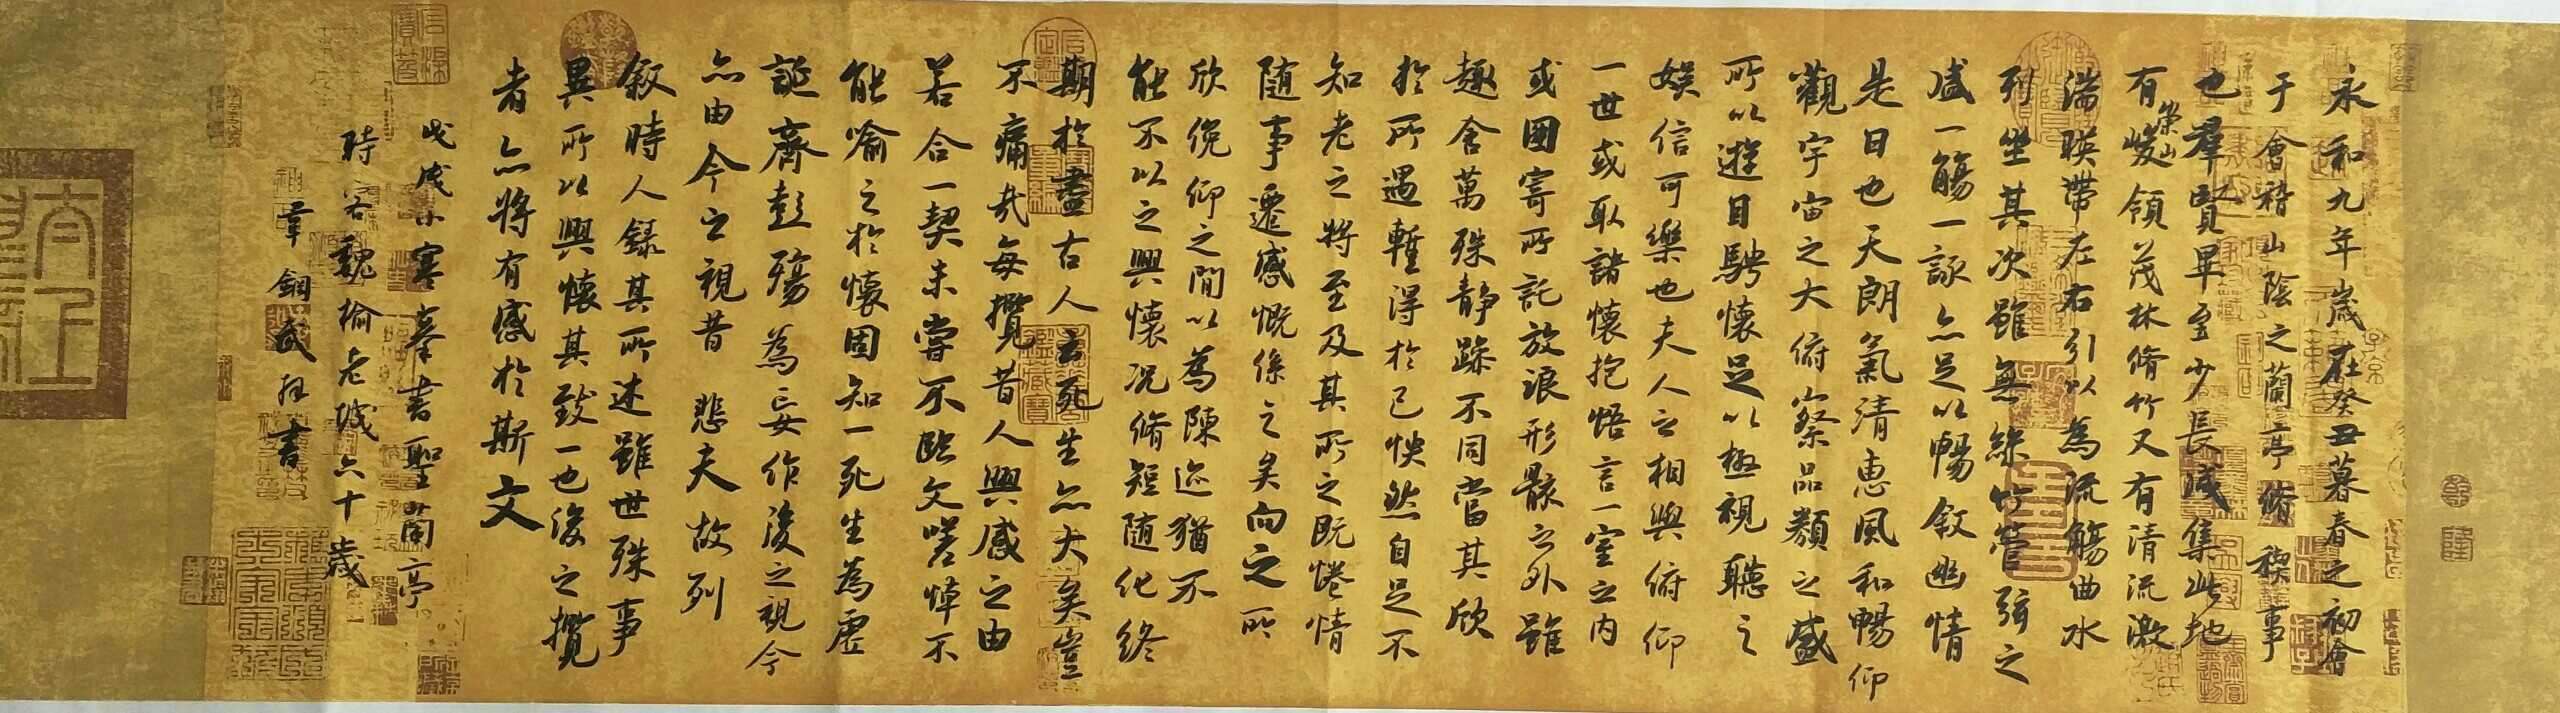 永和九年歲在癸丑暮春之初會
于會稽山陰之蘭亭脩禊事
也羣賢畢至少長咸集此地
有崇山峻領茂林脩竹又有清流激
湍暎帶左右引以為流觴曲水
列坐其次雖無絲竹管弦之
盛一觴一詠亦足以暢敘幽情
是日也天朗氣清惠風和暢仰
觀宇宙之大俯察品類之盛
所以遊目騁懷足以極視聽之
娛信可樂也夫人之相與俯仰
一世或取諸懷抱悟言一室之內
或因寄所託放浪形骸之外雖
趣舍萬殊靜躁不同當其欣
於所遇暫得於己怏然自足不
知老之將至及其所之既惓情
隨事遷感慨係之矣向之所
欣俛仰之間以為陳迹猶不
能不以之興懷況脩短隨化終
期於盡古人云死生亦大矣豈
不痛哉每攬昔人興感之由
若合一契未嘗不臨文嗟悼不
能喻之於懷固知一死生為虛
誕齊彭殤為妄作後之視今
亦由今之視昔悲夫故列
敘時人錄其所述雖世殊事
異所以興懷其致一也後之攬
者亦將有感於斯文
戊戌小寒摹書聖蘭亭
時客魏榆老城六十歲
鋼武拜書